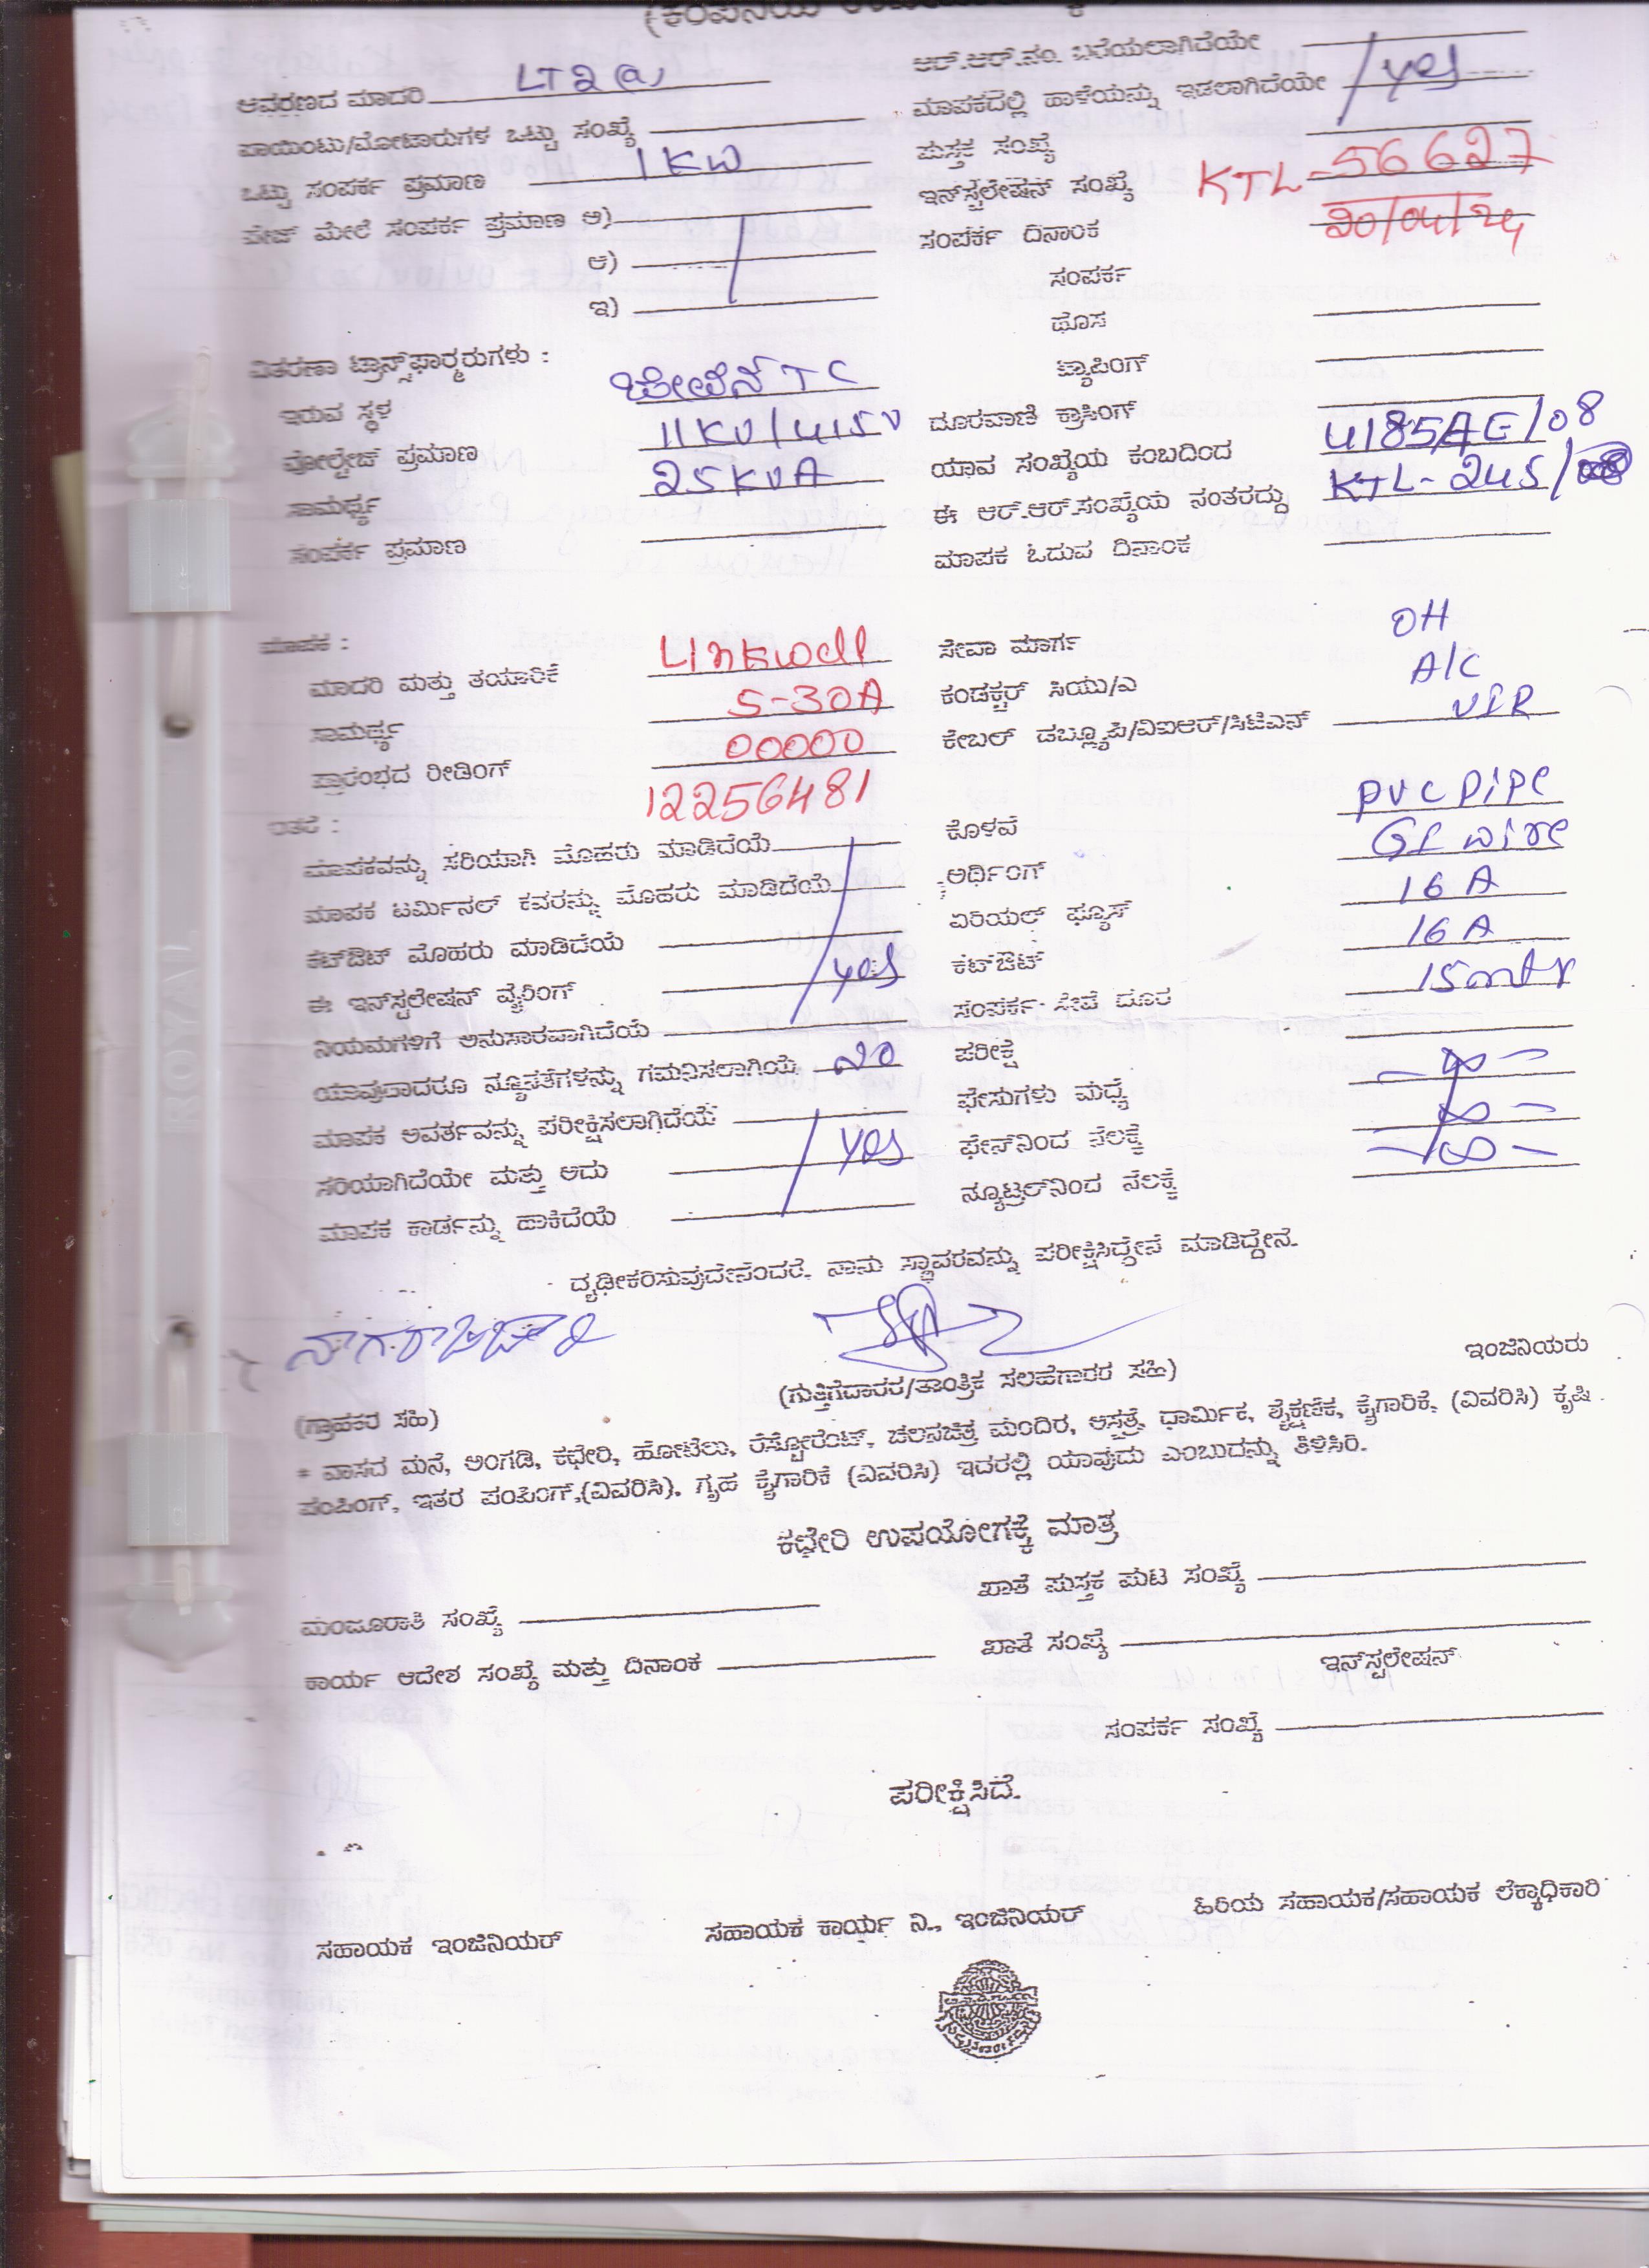 ಆರ್.ಆರ್.ನಂ. ಬರೆಯಲಾಗಿದೆಯೇ
ಆವರಣದ ಮಾದರಿ LT2(a)
ಮಾಪಕದಲ್ಲಿ ಹಾಳೆಯನ್ನು ಇಡಲಾಗಿದೆಯೇ yes
ಪಾಯಿಂಟು/ಮೋಟಾರುಗಳ ಒಟ್ಟು ಸಂಖ್ಯೆ
ಪುಸ್ತಕ ಸಂಖ್ಯೆ
ಒಟ್ಟು ಸಂಪರ್ಕ ಪ್ರಮಾಣ 1KW
ಇನ್‌ಸ್ಟಲೇಷನ್ ಸಂಖ್ಯೆ KTL-56627
ಪೇಜ್ ಮೇಲೆ ಸಂಪರ್ಕ ಪ್ರಮಾಣ ಅ)
ಸಂಪರ್ಕ ದಿನಾಂಕ 20/04/24
ಆ)
ಸಂಪರ್ಕ
ಇ)
ಹೊಸ
ವಿತರಣಾ ಟ್ರಾನ್ಸ್‌ಫಾರ್ಮರುಗಳು :
ಟ್ಯಾಪಿಂಗ್
ಇರುವ ಸ್ಥಳ TC
ದೂರವಾಣಿ ಕ್ರಾಸಿಂಗ್
ವೋಲ್ಟೇಜ್ ಪ್ರಮಾಣ 11KV/415V
ಯಾವ ಸಂಖ್ಯೆಯ ಕಂಬದಿಂದ 4185/AE/08
ಸಾಮರ್ಥ್ಯ 25KVA
ಈ ಆರ್.ಆರ್.ಸಂಖ್ಯೆಯ ನಂತರದ್ದು KTL-245/
ಸಂಪರ್ಕ ಪ್ರಮಾಣ
ಮಾಪಕ ಓದುವ ದಿನಾಂಕ
ಮಾಪಕ :
ಸೇವಾ ಮಾರ್ಗ OH
ಮಾದರಿ ಮತ್ತು ತಯಾರಿಕೆ Linkwell
ಕಂಡಕ್ಟರ್ ಸಿಯು/ಎ A/C
ಸಾಮರ್ಥ್ಯ 5-30A
ಕೇಬಲ್ ಡಬ್ಲ್ಯೂಪಿ/ವಿಐಆರ್/ಸಿಟಿಎಸ್ VIR
ಪ್ರಾರಂಭದ ರೀಡಿಂಗ್ 00000
12256481
ಇತರೆ :
ಕೊಳವೆ PVC pipe
ಮಾಪಕವನ್ನು ಸರಿಯಾಗಿ ಮೊಹರು ಮಾಡಿದೆಯೆ
ಅರ್ಥಿಂಗ್ GI wire
ಮಾಪಕ ಟರ್ಮಿನಲ್ ಕವರನ್ನು ಮೊಹರು ಮಾಡಿದೆಯೆ
ಏರಿಯಲ್ ಫ್ಯೂಸ್ 16 A
ಕಟ್‌ಔಟ್ ಮೊಹರು ಮಾಡಿದೆಯೆ
ಕಟ್‌ಔಟ್ 16 A
ಈ ಇನ್‌ಸ್ಟಲೇಷನ್ ವೈರಿಂಗ್ yes
ಸಂಪರ್ಕ ಸೇವೆ ದೂರ 15mtr
ನಿಯಮಗಳಿಗೆ ಅನುಸಾರವಾಗಿದೆಯೆ
ಪರೀಕ್ಷೆ
ಯಾವುದಾದರೂ ನ್ಯೂನತೆಗಳನ್ನು ಗಮನಿಸಲಾಗಿಯೆ no
ಫೇಸುಗಳು ಮಧ್ಯೆ - ∞ -
ಮಾಪಕ ಅವರ್ತವನ್ನು ಪರೀಕ್ಷಿಸಲಾಗಿದೆಯೆ
ಫೇಸ್‌ನಿಂದ ನೆಲಕ್ಕೆ ∞ -
ಸರಿಯಾಗಿದೆಯೇ ಮತ್ತು ಅದು yes
ನ್ಯೂಟ್ರಲ್‌ನಿಂದ ನೆಲಕ್ಕೆ - ∞ -
ಮಾಪಕ ಕಾರ್ಡನ್ನು ಹಾಕಿದೆಯೆ
ದೃಢೀಕರಿಸುವುದೇನೆಂದರೆ, ನಾನು ಸ್ಥಾವರವನ್ನು ಪರೀಕ್ಷಿಸಿದ್ದೇನೆ ಮಾಡಿದ್ದೇನೆ.
ನಾಗರಾಜಚಾರಿ
ಇಂಜಿನಿಯರು
(ಗ್ರಾಹಕರ ಸಹಿ)
(ಗುತ್ತಿಗೆದಾರರ/ತಾಂತ್ರಿಕ ಸಲಹೆಗಾರರ ಸಹಿ)
* ವಾಸದ ಮನೆ, ಅಂಗಡಿ, ಕಛೇರಿ, ಹೋಟೆಲು, ರೆಸ್ಟೋರೆಂಟ್, ಚಲನಚಿತ್ರ ಮಂದಿರ, ಆಸ್ಪತ್ರೆ, ಧಾರ್ಮಿಕ, ಶೈಕ್ಷಣಿಕ, ಕೈಗಾರಿಕೆ, (ವಿವರಿಸಿ) ಕೃಷಿ
ಪಂಪಿಂಗ್, ಇತರ ಪಂಪಿಂಗ್,(ವಿವರಿಸಿ), ಗೃಹ ಕೈಗಾರಿಕೆ (ವಿವರಿಸಿ) ಇದರಲ್ಲಿ ಯಾವುದು ಎಂಬುದನ್ನು ತಿಳಿಸಿರಿ.
ಕಛೇರಿ ಉಪಯೋಗಕ್ಕೆ ಮಾತ್ರ
ಮಂಜೂರಾತಿ ಸಂಖ್ಯೆ
ಖಾತೆ ಪುಸ್ತಕ ಪುಟ ಸಂಖ್ಯೆ
ಕಾರ್ಯ ಆದೇಶ ಸಂಖ್ಯೆ ಮತ್ತು ದಿನಾಂಕ
ಖಾತೆ ಸಂಖ್ಯೆ
ಇನ್‌ಸ್ಟಲೇಷನ್
ಸಂಪರ್ಕ ಸಂಖ್ಯೆ
ಪರೀಕ್ಷಿಸಿದೆ.
ಸಹಾಯಕ ಇಂಜಿನಿಯರ್
ಸಹಾಯಕ ಕಾರ್ಯ ನಿ., ಇಂಜಿನಿಯರ್
ಹಿರಿಯ ಸಹಾಯಕ/ಸಹಾಯಕ ಲೆಕ್ಕಾಧಿಕಾರಿ
ROYAL